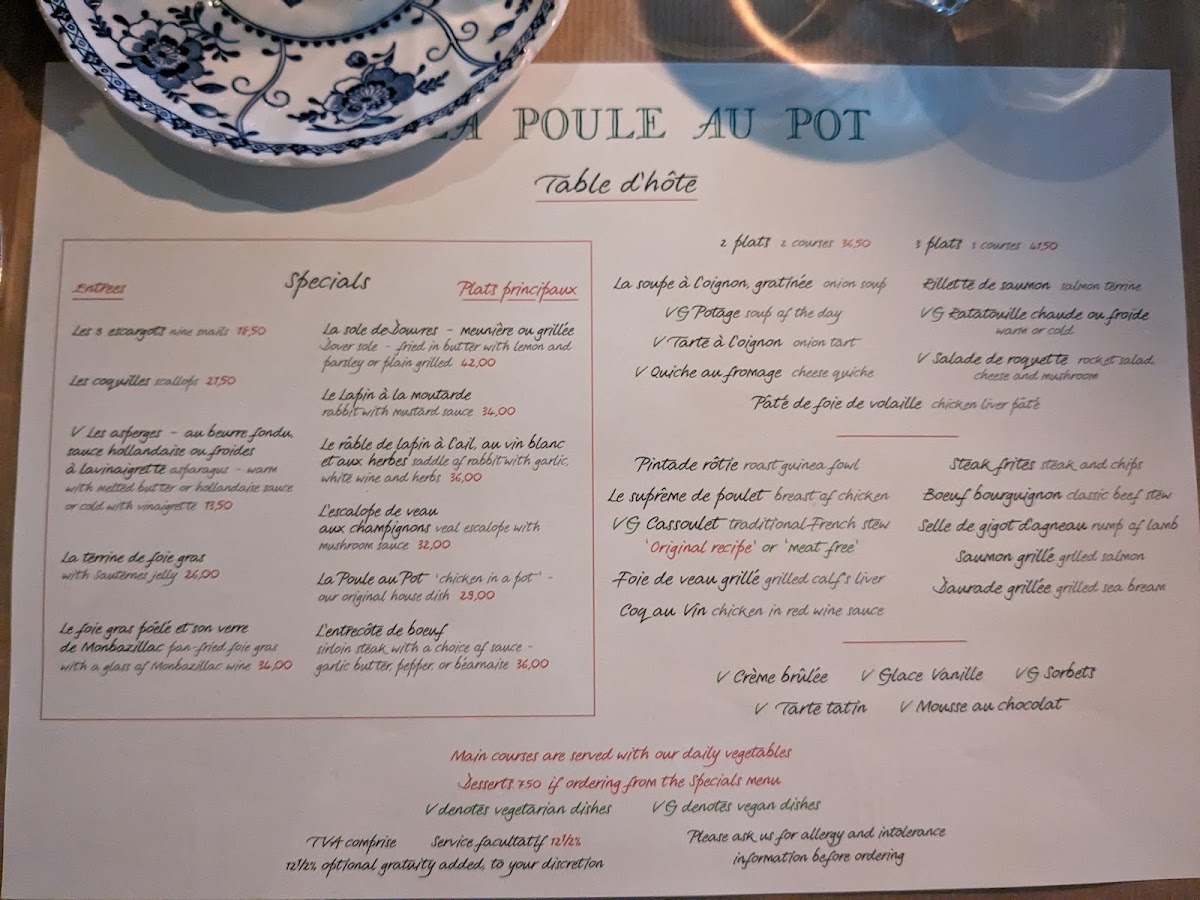 LA POULE AU POT
Table d'hôte
Specials
Entrees
Les 9 escargots nine snails 18,50
Les coquilles scallops 21,50
V Les asperges – au beurre fondu,
sauce hollandaise ou froides
à lavinaigrette asparagus – warm
with melted butter or hollandaise sauce
or cold with vinaigrette 13,50
La terrine de foie gras
with Sauternes jelly 26,00
Le foie gras poêlé et son verre
de Monbazillac pan-fried foie gras
with a glass of Monbazillac wine 34,00
Plats principaux
La sole de Douvres – meunière ou grillée
Dover sole – fried in butter with lemon and
parsley or plain grilled 42,00
Le Lapin à la moutarde
rabbit with mustard sauce 34,00
Le râble de lapin à l'ail, au vin blanc
et aux herbes saddle of rabbit with garlic,
white wine and herbs 36,00
L'escalope de veau
aux champignons veal escalope with
mushroom sauce 32,00
La Poule au Pot 'chicken in a pot' –
our original house dish 29,00
L'entrecôte de boeuf
sirloin steak with a choice of sauce –
garlic butter, pepper, or béarnaise 36,00
2 plats 2 courses 36,50 3 plats 3 courses 41,50
La soupe à l'oignon, gratinée onion soup
VG Potage soup of the day
V Tarte à l'oignon onion tart
V Quiche au fromage cheese quiche
Rillette de saumon salmon terrine
VG Ratatouille chaude ou froide
warm or cold
V Salade de roquette rocket salad,
cheese and mushroom
Pâté de foie de volaille chicken liver pâté
Pintade rôtie roast guinea fowl
Le suprême de poulet breast of chicken
VG Cassoulet traditional French stew
'Original recipe' or 'meat free'
Foie de veau grillé grilled calf's liver
Coq au Vin chicken in red wine sauce
Steak frites steak and chips
Boeuf bourguignon classic beef stew
Selle de gigot d'agneau rump of lamb
Saumon grillé grlled salmon
Daurade grillée grilled sea bream
V Crème brûlée V Glace Vanille VG Sorbets
V Tarte tatin V Mousse au chocolat
Main courses are served with our daily vegetables
Desserts 7.50 if ordering from the Specials menu
V denotes vegetarian dishes VG denotes vegan dishes
TVA comprise Service facultatif 12½%
12½% optional gratuity added, to your discretion
Please ask us for allergy and intolerance
information before ordering